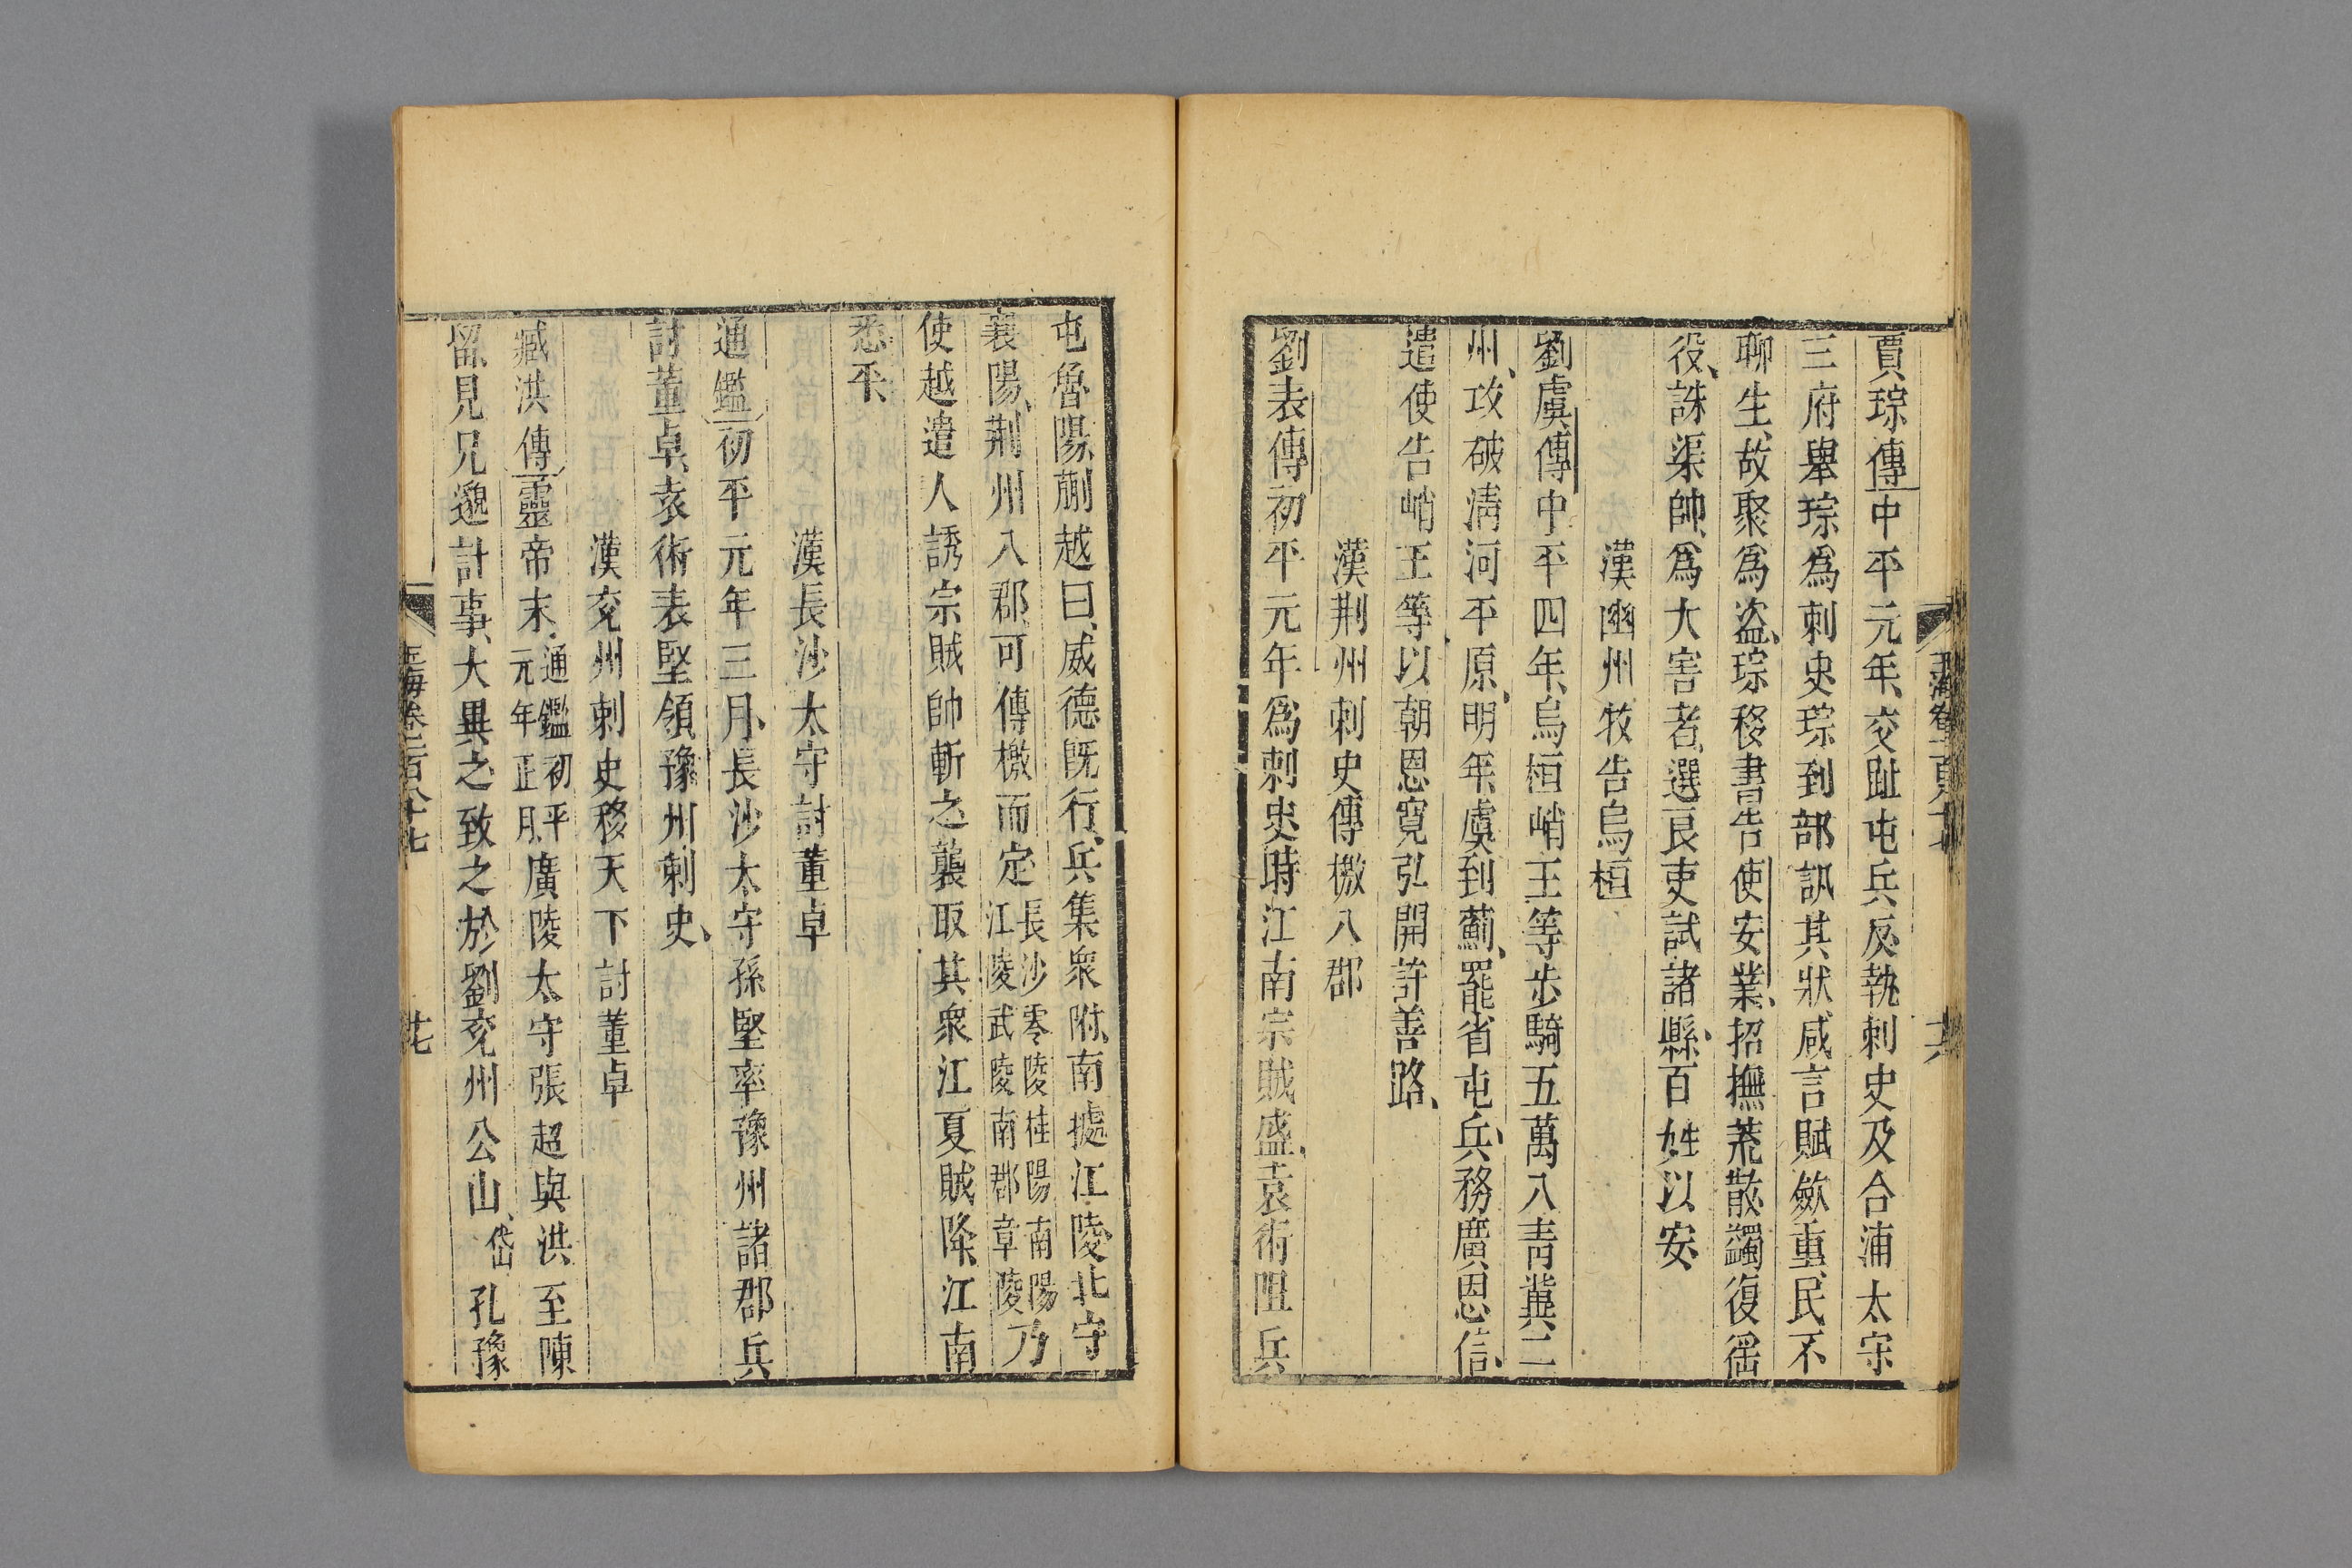 賈琮傳中平元年交趾屯兵反執刺史及合浦太守
三府舉琮爲刺史琮到部訊其狀咸言賦斂重民不
聊生故聚爲盜琮移書告使安業招撫荒散蠲復徭
役誅渠帥爲大害者選良吏試諸縣百姓以安
漢幽州牧告烏桓
劉虞傳中平四年烏桓峭王等步騎五萬入青冀二
州攻破淸河平原明年虞到薊罷省屯兵務廣恩信
遣使告峭王等以朝恩寬弘開許善路
漢荆州刺史傳檄八郡
劉表傳初平元年爲刺史時江南宗賊盛袁術阻兵
屯魯陽蒯越曰威德旣行兵集衆附南據江陵北守
襄陽荆州八郡可傳檄而定長沙零陵桂陽南陽江陵武陵南郡章陵乃
使越遣人誘宗賊帥斬之襲取其衆江夏賊降江南
悉平
漢長沙太守討董卓
通鑑初平元年三月長沙太守孫堅率豫州諸郡兵
討董卓袁術表堅領豫州刺史
漢兖州刺史移天下討董卓
臧洪傳靈帝末通鑑初平元年正月廣陵太守張超與洪至陳
留見兄邈計事大異之致之於劉兖州公山岱孔豫
玉海卷一百八十七
廿七